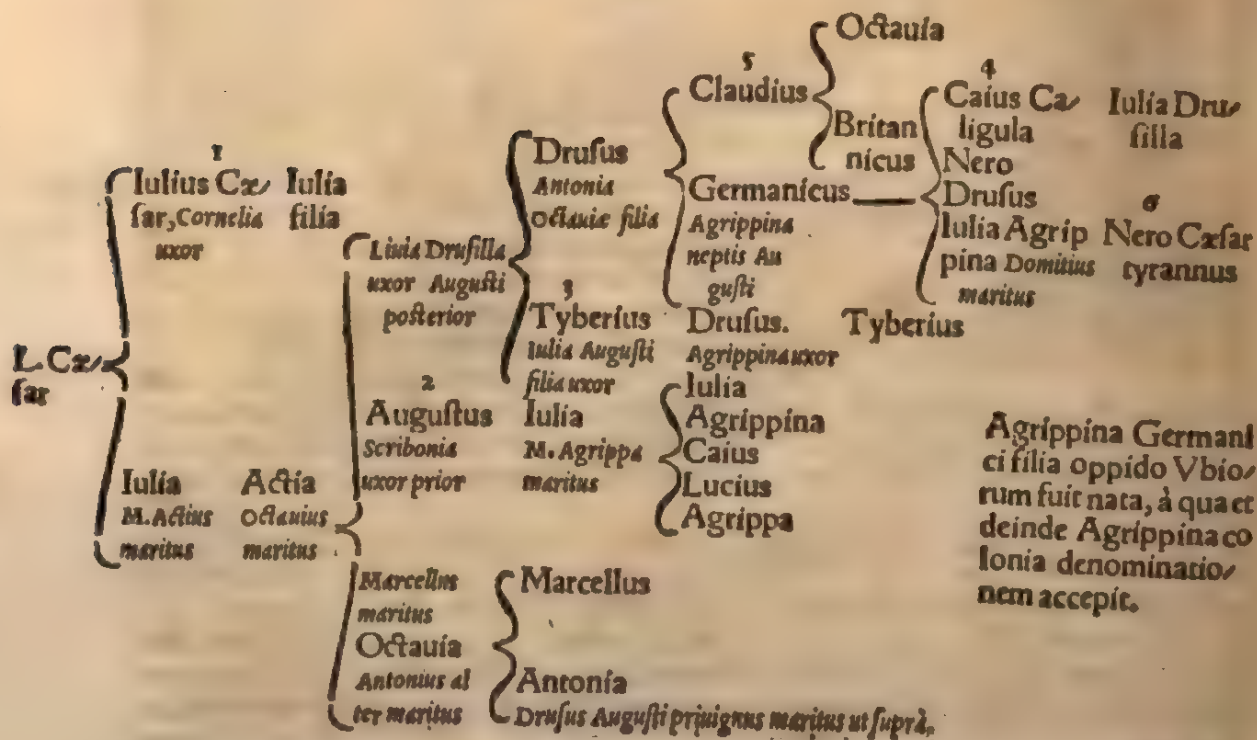 L. Cæ⸗
ſar
1
Iulius Cæ⸗
ſar, Cornelia
uxor
Iulia
filia
Iulia
M. Actius
maritus
Actia
Octauius
maritus
Liuia Druſilla
uxor Auguſti
poſterior
2
Auguſtus
Scribonia
uxor prior
Marcellus
maritus
Octauia
Antonius al
ter maritus
Druſus
Antonia
Octauiæ filia
3
Tyberius
Iulia Auguſti
filia uxor
Iulia
M. Agrippa
maritus
Marcellus
Antonia
Druſus Auguſti priuignus maritus ut ſuprà.
5
Claudius
Germanicus
Agrippina
neptis Au
guſti
Druſus.
Agrippina uxor
Iulia
Agrippina
Caius
Lucius
Agrippa
Octauia
Britan
nicus
Tyberius
4
Caius Ca⸗
ligula
Nero
Druſus
Iulia Agrip
pina Domitius
maritus
Iulia Dru⸗
ſilla
6
Nero Cæſar
tyrannus
Agrippina Germani
ci filia oppido Vbio⸗
rum fuit nata, à qua et
deinde Agrippina co
lonia denominatio⸗
nem accepit.